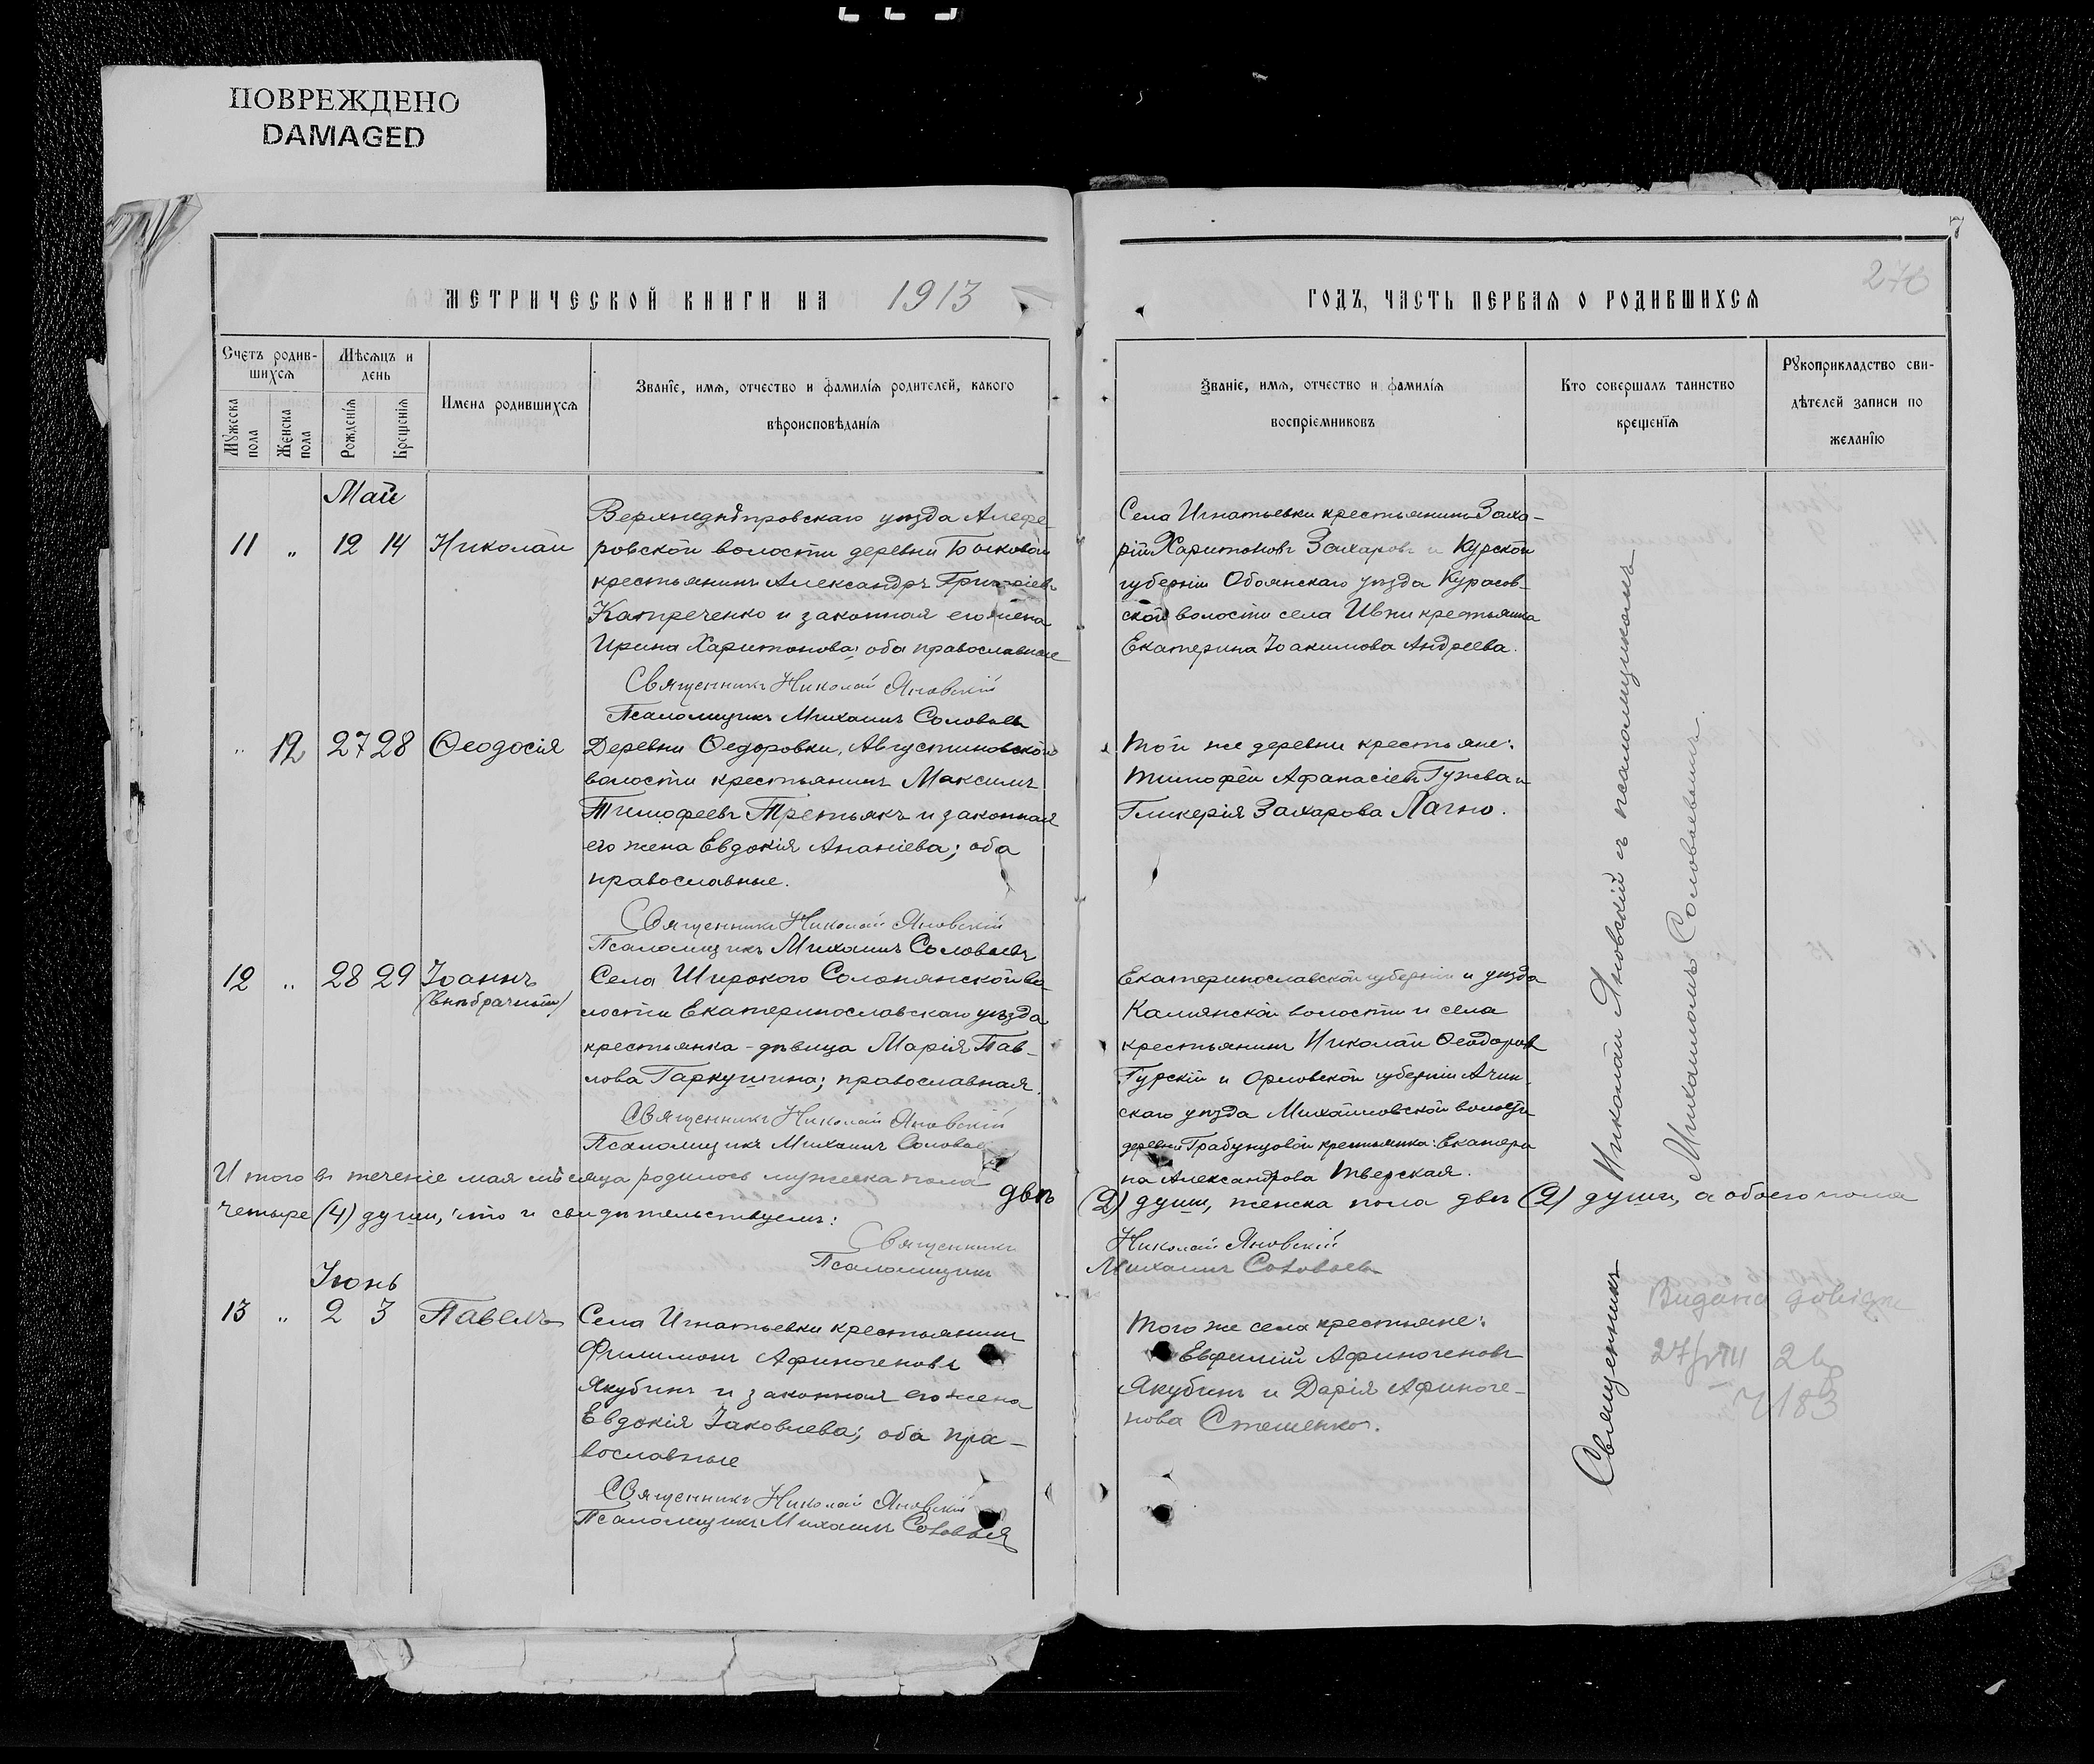 ПОВРЕЖДЕНО
DAMAGED
7
276
МЕТРИЧЕСКОЙ КНИГИ НА 1913
ГОДЪ, ЧАСТЬ ПЕРВАЯ О РОДИВШИХСЯ
Счетъ родив-
шихся
Мужеска
пола
Женска
пола
Мѣсяцъ и
день
Рожденія
Крещенія
Имена родившихся
Званіе, имя, отчество и фамилія родителей, какого
вѣроисповѣданія
Званіе, имя, отчество и фамилія
воспріемниковъ
Кто совершалъ таинство
крещенія
Рукоприкладство сви-
дѣтелей записи по
желанію
Май
11 „ 12 14 Николай
Верхнеднѣпровскаго уѣзда
ровской волости деревни
крестьянинъ Александръ Григоріевъ
Катреченко и законная его жена
Ирина Харитонова; оба православные
Священникъ Николай Яновскій
Псаломщикъ Михаилъ Соловьевъ
Села Игнатьевки крестьянинъ Заха-
рій Харитоновъ Захаровъ и Курской
губерніи Обоянскаго уѣзда Курасов-
ской волости села Ивни крестьянка
Екатерина Іоакимова Андреева.
„ 12 27 28 Ѳеодосія
Деревни Ѳедоровки, Августиновской
волости крестьянинъ Максимъ
Тимофеевъ Третьякъ и законная
его жена Евдокія Ананіева; оба
православные.
Священникъ Николай Яновскій
Псаломщикъ Михаилъ Соловьевъ
Той же деревни крестьяне:
Тимофей Афанасіевъ Гужва и
Гликерія Захарова Лагно.
12 „ 28 29 Іоаннъ
(внѣбрачный)
Села Широкого Солонянской во-
лости Екатеринославскаго уѣзда
крестьянка-дѣвица Марія Пав-
лова Гаркушина; православная.
Священникъ Николай Яновскій
Псаломщикъ Михаилъ Соловьев
Екатеринославской губерніи и уѣзда
Камянской волости и села
крестьянинъ Николай Ѳеодоровъ
Гурскій и Орловской губерніи
скаго уѣзда Михайловской волости
деревни крестьянка: Екатери
на Александрова Тверская.
Итого въ теченіе мая мѣсяца родилось мужеска пола двѣ (2) души, женска пола двѣ (2) души, а обоего пола
четыре (4) души, что и свидѣтельствуемъ:
Священникъ Николай Яновскій
Псаломщикъ Михаилъ Соловьевъ
Іюнь
13 „ 2 3 Павелъ
Села Игнатьевки крестьянинъ
Филимонъ Афиногеновъ
Якубинъ и законная его жена
Евдокія Іаковлева; оба пра-
вославные
Священникъ Николай Яновскій
Псаломщикъ Михаилъ Соловьев
Того же села крестьяне:
Евфимій Афиногеновъ
Якубинъ и Дарія Афиноге-
нова Стешенко.
Священникъ Николай Яновскій съ псаломщикомъ
Михаиломъ Соловьевымъ.
27/VIII 26
№ 183